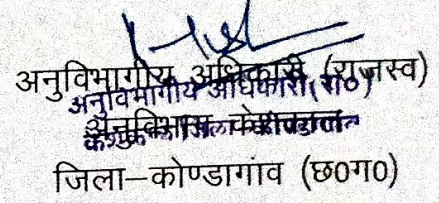 अनुविभागीय अधिकारी (राजस्व)
अनुविभागीय अधिकारी(रा०)
अनुविभाग केशकाल
जिला–कोण्डागांव (छ०ग०)